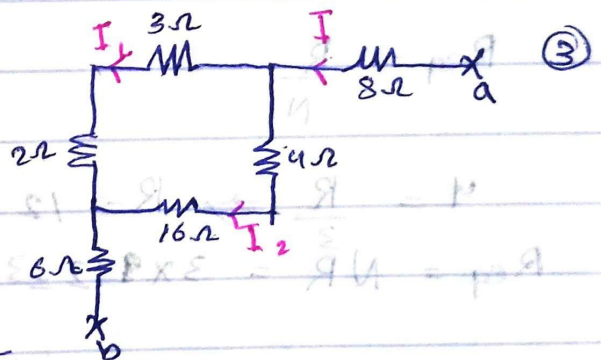 I₁ 3Ω I ③
8Ω a
2Ω 4Ω
16Ω I₂
6Ω
b